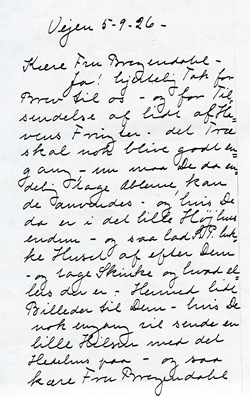 Vejen 5-9-26-
Kære Fru Brogendahl-
Ja! hjertelig Tak for
Brev til os - og for Til,
sendelse af lidt af Ha,
vens Frugter - det Træ
skal nok blive godt en,
gang - nu maa De da en,
delig tage Æblerne, kan
de anvendes - og hvis De
da er i det lille Højhus
endnu - og saa lad luk,
ke Huset af efter Dem
- og tage Skinke og hvad el,
lers der er - Hermed lidt
Billeder til Dem - hvis De
nok engang vil sende en
lille Hilsen med det
Hedehus paa - og saa
kære Fru Brogendahl